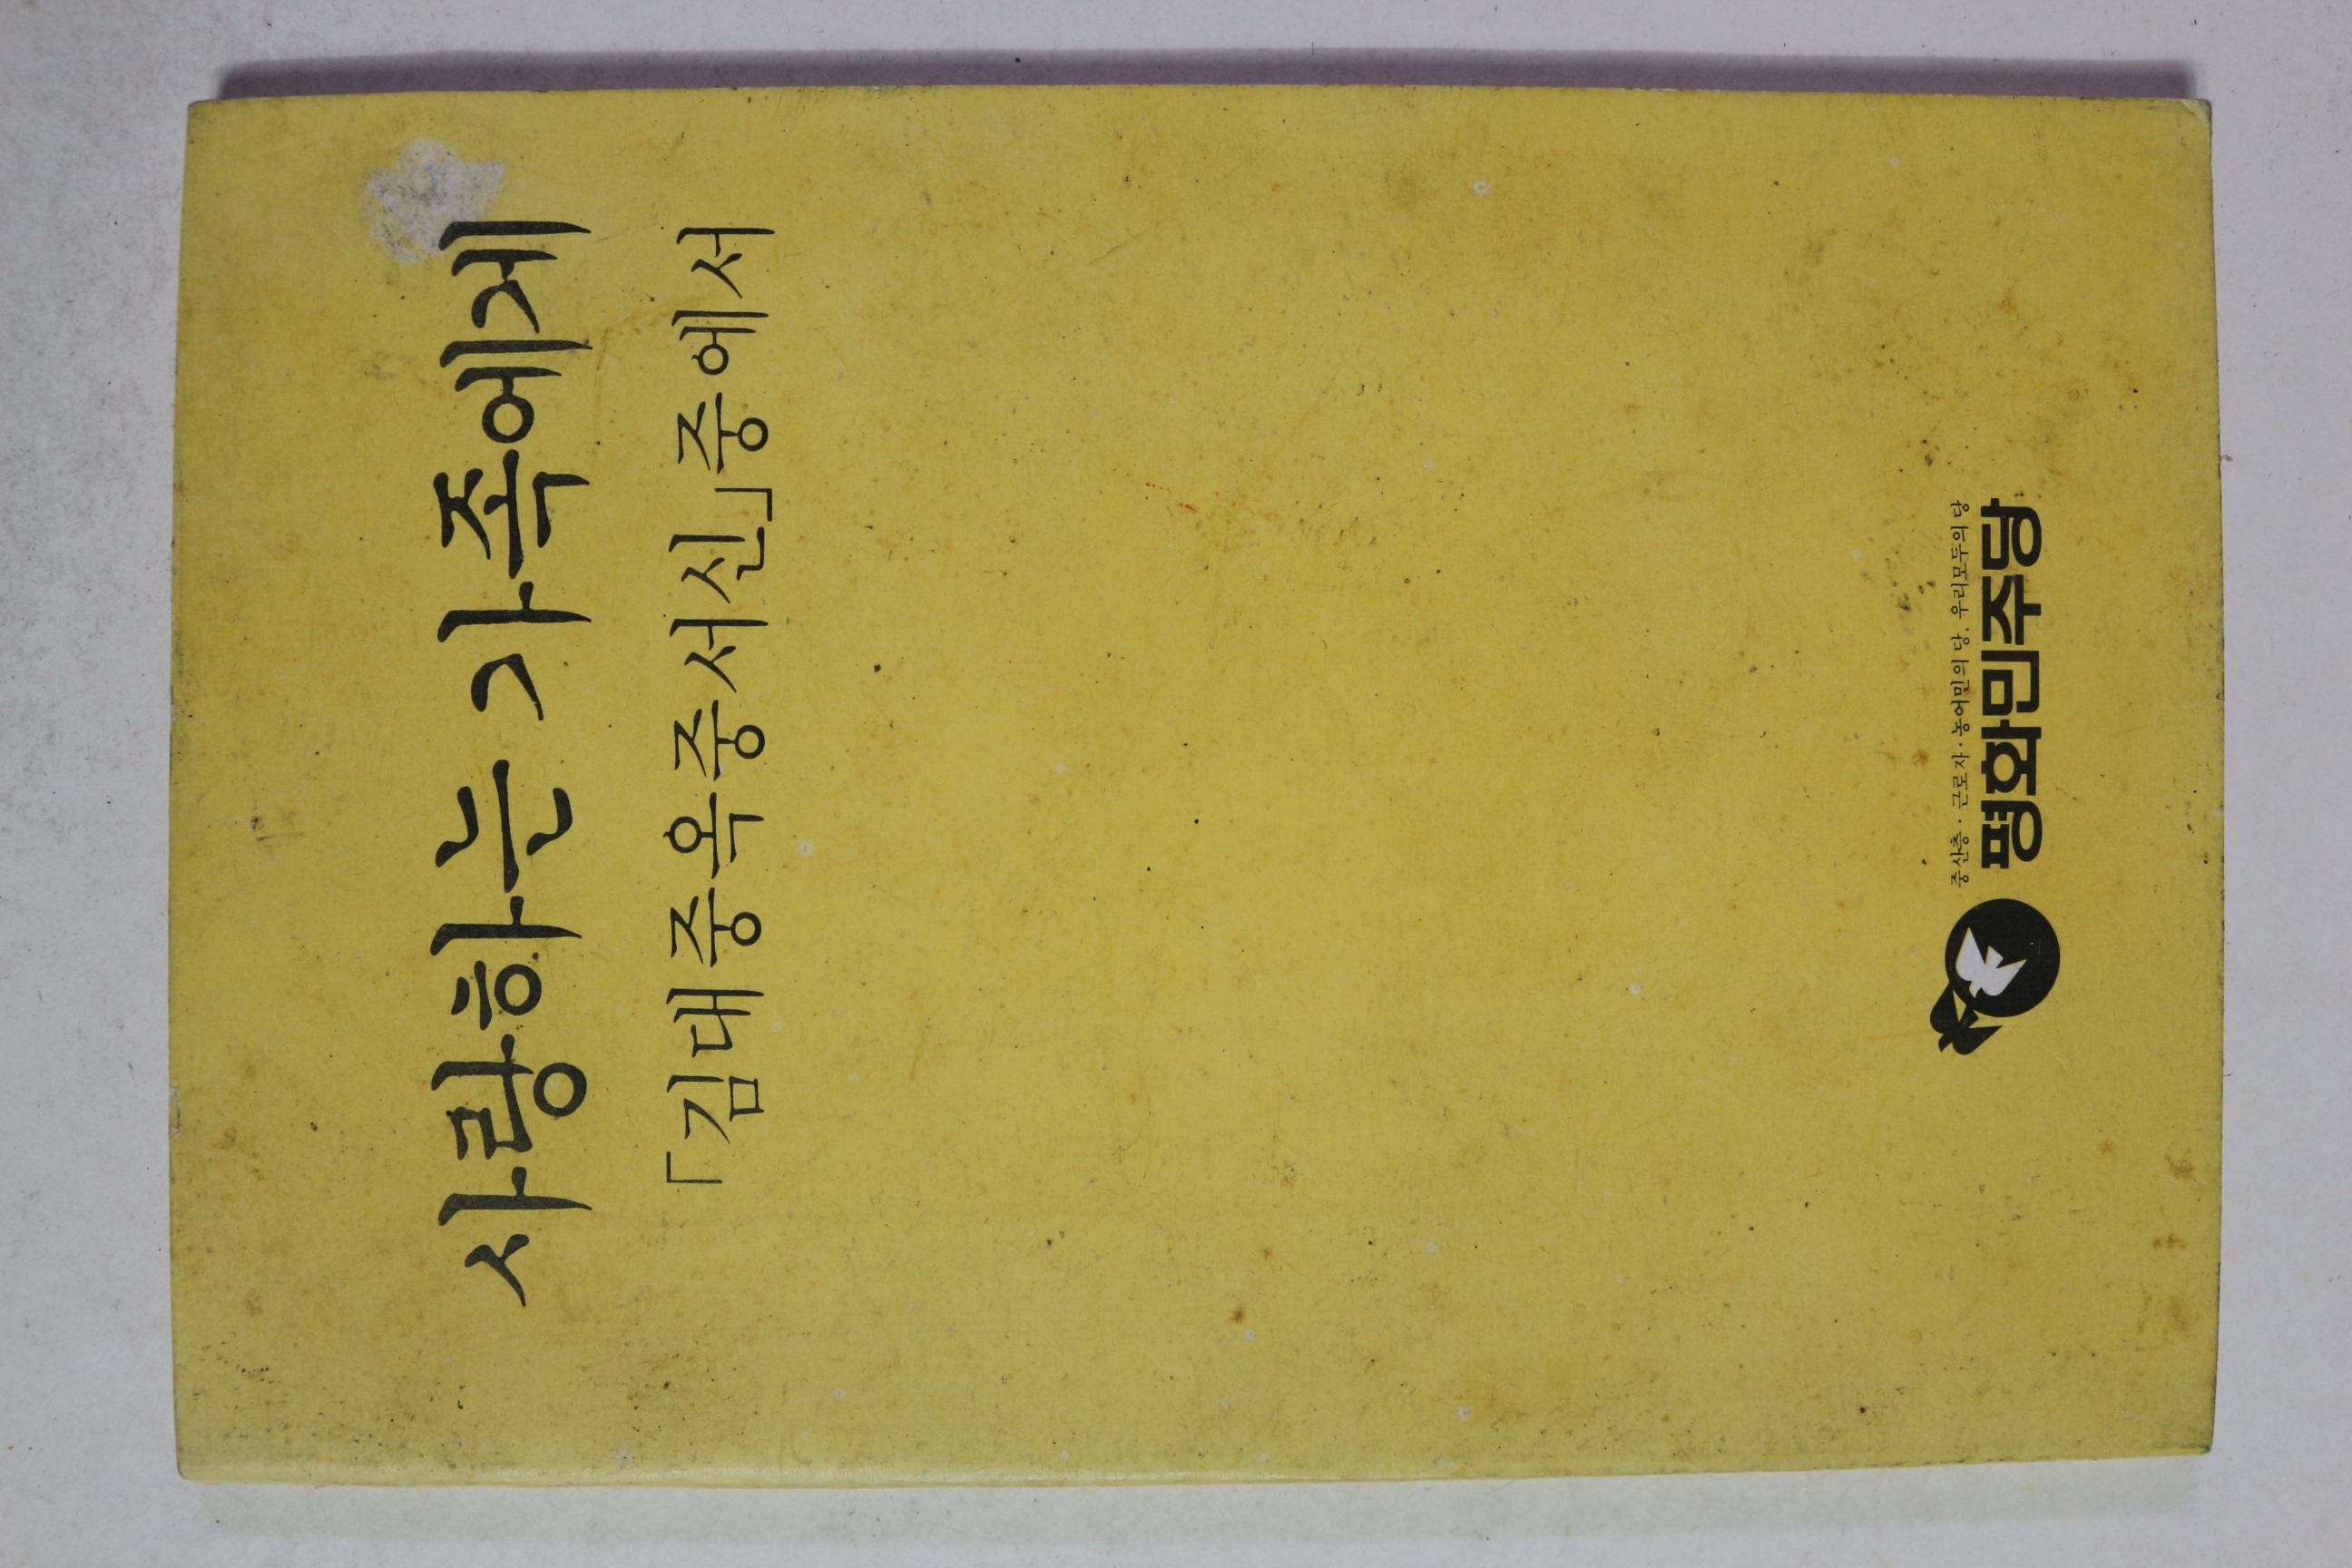 사랑하는 가족에게
「김대중옥중서신」중에서
중산층·근로자·농어민의 당, 우리모두의 당
평화민주당